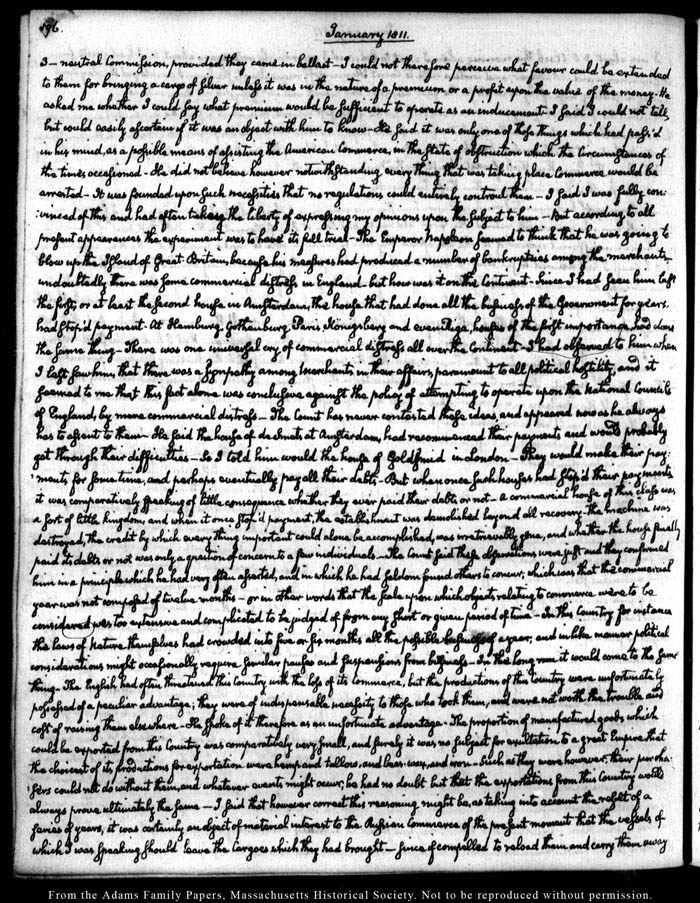 196.
January 1811.
3 — neutral Commission, provided they came in ballast — I could not therefore perceive what favour could be extended
to them for bringing a cargo of Silver unless it was in the nature of a premium or a profit upon the value of the money. He
asked me whether I could say what premium would be sufficient to operate as an inducement. I said I could not tell,
but could easily ascertain if it was an object with him to know — He said it was only one of those things which had pass'd
in his mind, as a possible means of assisting the American Commerce, in the State of obstruction which the Circumstances of
the times occasioned — He did not believe however notwithstanding every thing that was taking place Commerce would be
arrested — It was founded upon such necessities that no regulations could entirely controul them — I said I was fully con-
:vinced of this and had often taken the liberty of expressing my opinions upon the subject to him — But according to all
present appearances the experiment was to have its full trial — The Emperor Napoleon seemed to think that he was going to
blow up the Island of Great Britain, because his measures had produced a number of bankruptcies among the merchants,
undoubtedly there was some commercial distress in England — but how was it on the Continent — Since I had seen him last
the first, or at least the second house in Amsterdam, the house that had done all the business of the Government for years
had stop'd payment. At Hamburg, Gothenburg, Paris Königsberg and even Riga, houses of the first importance, had done
the same thing — There was one universal cry of commercial distress all over the Continent — I had observed to him when
I last saw him, that there was a sympathy among Merchants in their affairs, paramount to all political hostility, and it
seemed to me that this fact alone was conclusive against the policy of attempting to operate upon the National Councils
of England, by mere commercial distress — The Count has never contested these ideas, and appeared now as he always
has to assent to them — He said the house of de Smeth at Amsterdam, had recommenced their payments and would probably
get through their difficulties — So I told him would the house of Goldsmid in London — They would make their pay-
:ments for some time, and perhaps eventually pay all their debts — But when once such houses had stop'd their payments
it was comparatively speaking of little consequence whether they ever paid their debts or not — a commercial house of this class was
a sort of little kingdom, and when it once stop'd payment, the establishment was demolished beyond all recovery — the machine was
destroyed, the credit by which every thing important could alone be accomplished, was irretrievably gone, and whether the house finally
paid its debts or not was only a question of concern to a few individuals — The Count said these observations were just and they confirmed
him in a principle which he had very often asserted, and in which he had seldom found others to concur, which was that the commercial
year was not composed of twelve months — or in other words that the scale upon which objects relating to commerce were to be
considered was too extensive and complicated to be judged of from any short or given period of time — In this Country for instance
the laws of Nature themselves had crowded into five or six months all the possible business of a year, and in like manner political
considerations might occasionally require similar pauses and suspensions from business — In the long run it would come to the same
thing — The English had often threatened this Country with the loss of its Commerce, but the productions of this Country were unfortunately
possessed of a peculiar advantage; they were of indispensable necessity to those who took them, and were not worth the trouble and
cost of raising them elsewhere — He spoke of it therefore as an unfortunate advantage. The proportion of manufactured goods which
could be exported from this Country was comparatively very small, and surely it was no subject for exultation to a great Empire that
the choicest of its productions for exportation were hemp and tallow, and bees-wax, and iron — Such as they were, however, their purcha-
:sers could not do without them, and whatever events might occur, he had no doubt but that the exportations from this Country would
always prove ultimately the same — I said that however correct this reasoning might be, as taking into account the result of a
series of years, it was certainly an object of material interest to the Russian Commerce of the present moment that the vessels, of
which I was speaking should leave the Cargoes which they had brought — since if compelled to reload them and carry them away
From the Adams Family Papers, Massachusetts Historical Society. Not to be reproduced without permission.